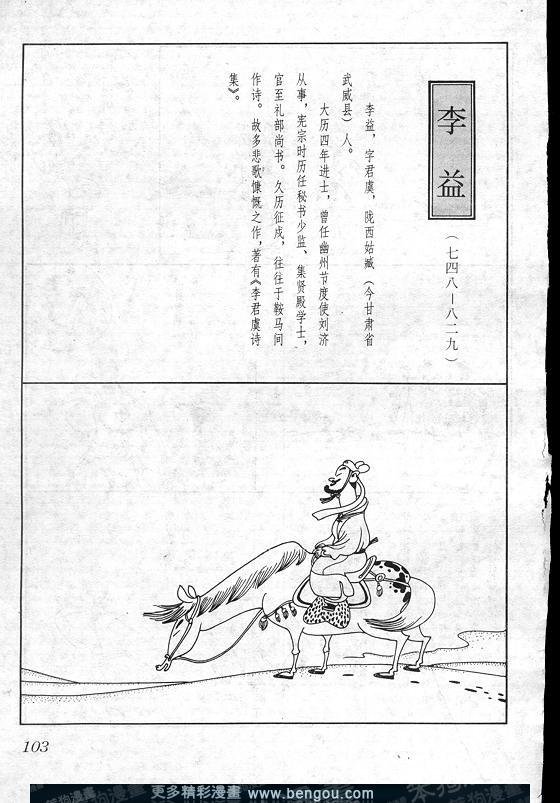 李益
（七四八－八二九）
李益，字君虞，陇西姑臧（今甘肃省
武威县）人。
大历四年进士，曾任幽州节度使刘济
从事，宪宗时历任秘书少监、集贤殿学士，
官至礼部尚书。久历征戍，往往于鞍马间
作诗。故多悲歌慷慨之作，著有《李君虞诗
集》。
103
更多精彩漫畫 www.bengou.com